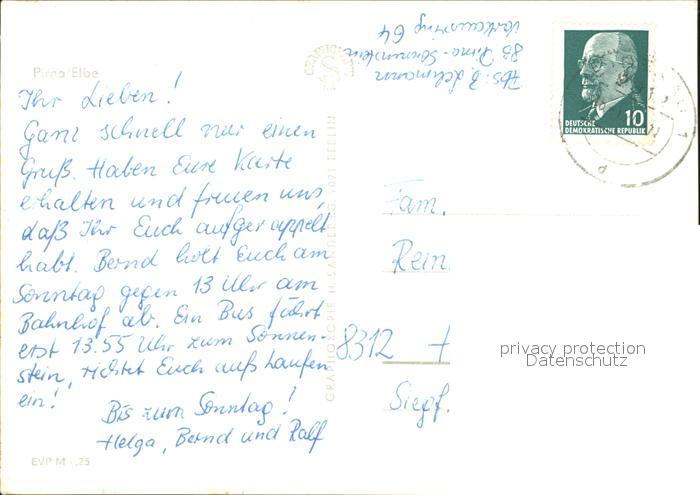 Pirna/Elbe
Ihr Lieben!
Ganz schnell nur einen
Gruß. Haben Eure Karte
erhalten und freuen uns,
daß Ihr Euch aufgerappelt
habt. Bernd holt Euch am
Sonntag gegen 13 Uhr am
Bahnhof ab. Ein Bus fährt
erst 13.55 Uhr zum Sonnen-
stein, richtet Euch aufs Laufen
ein!
Bis zum Sonntag!
Helga, Bernd und Ralf
EVP M -,25
GRAPHOKOPIE H. SANDER KG, 1071 BERLIN
Abs: B. Lehmann
83 Pirna-Sonnenstein
64
10
DEUTSCHE
DEMOKRATISCHE REPUBLIK
Fam.
Rein
8312
Siegf.
privacy protection
Datenschutz